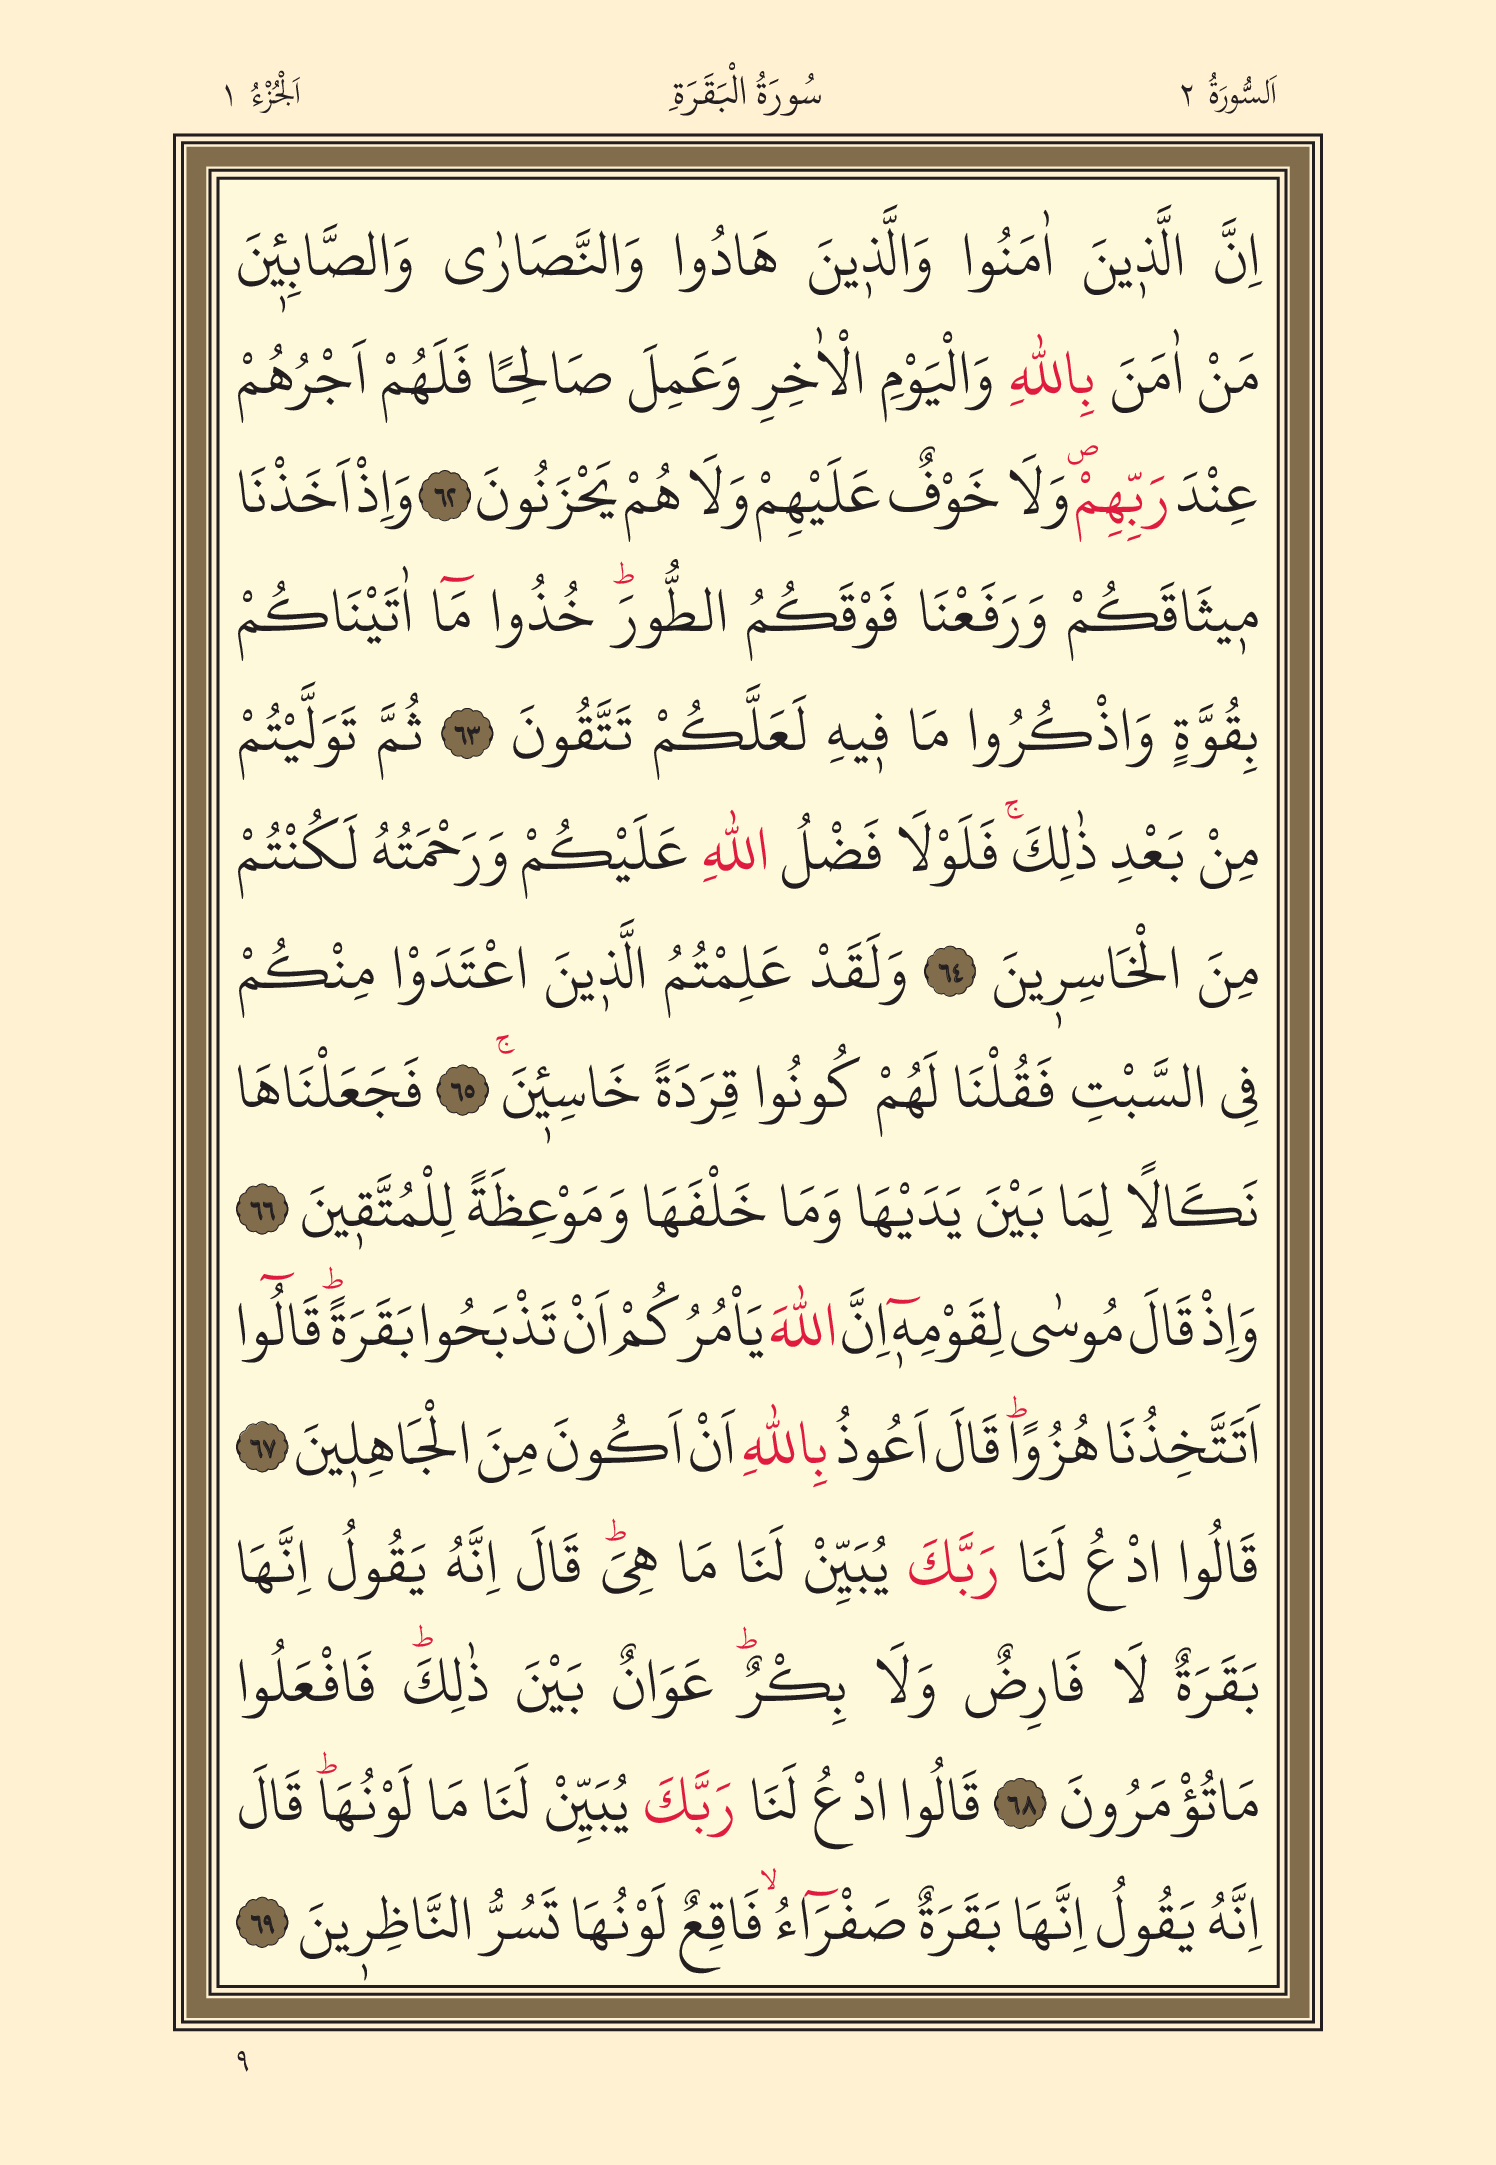 اَلسُّورَةُ ٢ سُورَةُ الْبَقَرَةِ اَلْجُزْءُ ١
اِنَّ الَّذ۪ينَ اٰمَنُوا وَالَّذ۪ينَ هَادُوا وَالنَّصَارٰى وَالصَّابِـ۪ٔينَ
مَنْ اٰمَنَ بِاللّٰهِ وَالْيَوْمِ الْاٰخِرِ وَعَمِلَ صَالِحًا فَلَهُمْ اَجْرُهُمْ
عِنْدَ رَبِّهِمْۖ وَلَا خَوْفٌ عَلَيْهِمْ وَلَا هُمْ يَحْزَنُونَ ﴿٦٢﴾ وَاِذْ اَخَذْنَا
م۪يثَاقَكُمْ وَرَفَعْنَا فَوْقَكُمُ الطُّورَۜ خُذُوا مَٓا اٰتَيْنَاكُمْ
بِقُوَّةٍ وَاذْكُرُوا مَا ف۪يهِ لَعَلَّكُمْ تَتَّقُونَ ﴿٦٣﴾ ثُمَّ تَوَلَّيْتُمْ
مِنْ بَعْدِ ذٰلِكَۚ فَلَوْلَا فَضْلُ اللّٰهِ عَلَيْكُمْ وَرَحْمَتُهُ لَكُنْتُمْ
مِنَ الْخَاسِر۪ينَ ﴿٦٤﴾ وَلَقَدْ عَلِمْتُمُ الَّذ۪ينَ اعْتَدَوْا مِنْكُمْ
فِي السَّبْتِ فَقُلْنَا لَهُمْ كُونُوا قِرَدَةً خَاسِـ۪ٔينَۚ ﴿٦٥﴾ فَجَعَلْنَاهَا
نَكَالًا لِمَا بَيْنَ يَدَيْهَا وَمَا خَلْفَهَا وَمَوْعِظَةً لِلْمُتَّق۪ينَ ﴿٦٦﴾
وَاِذْ قَالَ مُوسٰى لِقَوْمِه۪ٓ اِنَّ اللّٰهَ يَاْمُرُكُمْ اَنْ تَذْبَحُوا بَقَرَةًۜ قَالُٓوا
اَتَتَّخِذُنَا هُزُوًاۜ قَالَ اَعُوذُ بِاللّٰهِ اَنْ اَكُونَ مِنَ الْجَاهِل۪ينَ ﴿٦٧﴾
قَالُوا ادْعُ لَنَا رَبَّكَ يُبَيِّنْ لَنَا مَا هِيَۜ قَالَ اِنَّهُ يَقُولُ اِنَّهَا
بَقَرَةٌ لَا فَارِضٌ وَلَا بِكْرٌۜ عَوَانٌ بَيْنَ ذٰلِكَۜ فَافْعَلُوا
مَاتُؤْمَرُونَ ﴿٦٨﴾ قَالُوا ادْعُ لَنَا رَبَّكَ يُبَيِّنْ لَنَا مَا لَوْنُهَاۜ قَالَ
اِنَّهُ يَقُولُ اِنَّهَا بَقَرَةٌ صَفْرَٓاءُۙ فَاقِعٌ لَوْنُهَا تَسُرُّ النَّاظِر۪ينَ ﴿٦٩﴾
٩